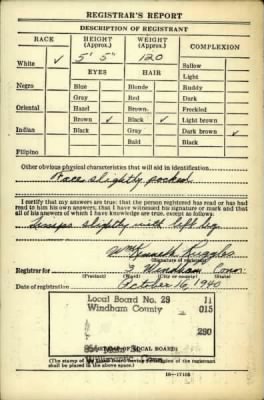 REGISTRAR'S REPORT
DESCRIPTION OF REGISTRANT
RACE HEIGHT (Approx.) WEIGHT (Approx.) COMPLEXION
White ✓ 5' 5" 120 Sallow
EYES HAIR Light
Negro Blue Blonde Ruddy
Gray Red Dark
Oriental Hazel Brown Freckled
Brown ✓ Black ✓ Light brown
Indian Black Gray Dark brown ✓
Bald Black
Filipino
Other obvious physical characteristics that will aid in identification
Face slightly pocked
I certify that my answers are true; that the person registered has read or has had
read to him his own answers; that I have witnessed his signature or mark and that
all of his answers of which I have knowledge are true, except as follows:
Limps slightly with left leg
Wm Kenneth Ruggles
(Signature of registrar)
Registrar for 3 Windham Conn
(Precinct) (Ward) (City or county) (State)
Date of registration October 16, 1940
Local Board No. 29 11
Windham County 015
LOCAL BOARD)
(The stamp of the Local Board having jurisdiction of the registrant
shall be placed in the above space.)